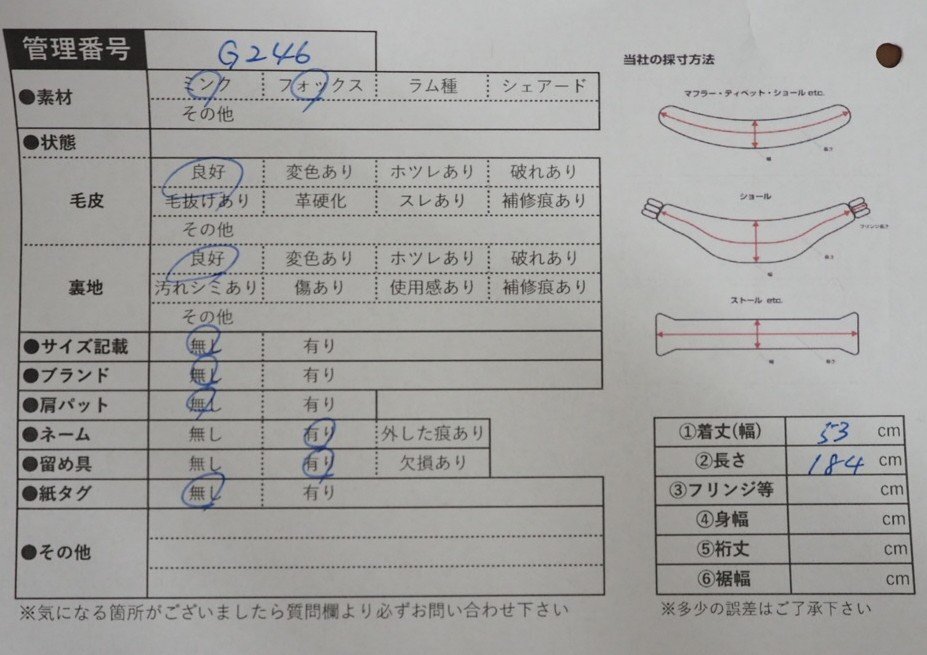 管理番号 G246
●素材 ミンク フォックス ラム種 シェアード
その他
●状態
毛皮 良好 変色あり ホツレあり 破れあり
毛抜けあり 革硬化 スレあり 補修痕あり
その他
裏地 良好 変色あり ホツレあり 破れあり
汚れシミあり 傷あり 使用感あり 補修痕あり
その他
●サイズ記載 無し 有り
●ブランド 無し 有り
●肩パット 無し 有り
●ネーム 無し 有り 外した痕あり
●留め具 無し 有り 欠損あり
●紙タグ 無し 有り
●その他
※気になる箇所がございましたら質問欄より必ずお問い合わせ下さい
当社の採寸方法
マフラー・ティペット・ショール etc.
幅
長さ
ショール
フリンジ長さ
幅
長さ
ストール etc.
幅
長さ
①着丈(幅) 53 cm
②長さ 184 cm
③フリンジ等 cm
④身幅 cm
⑤裄丈 cm
⑥裾幅 cm
※多少の誤差はご了承下さい